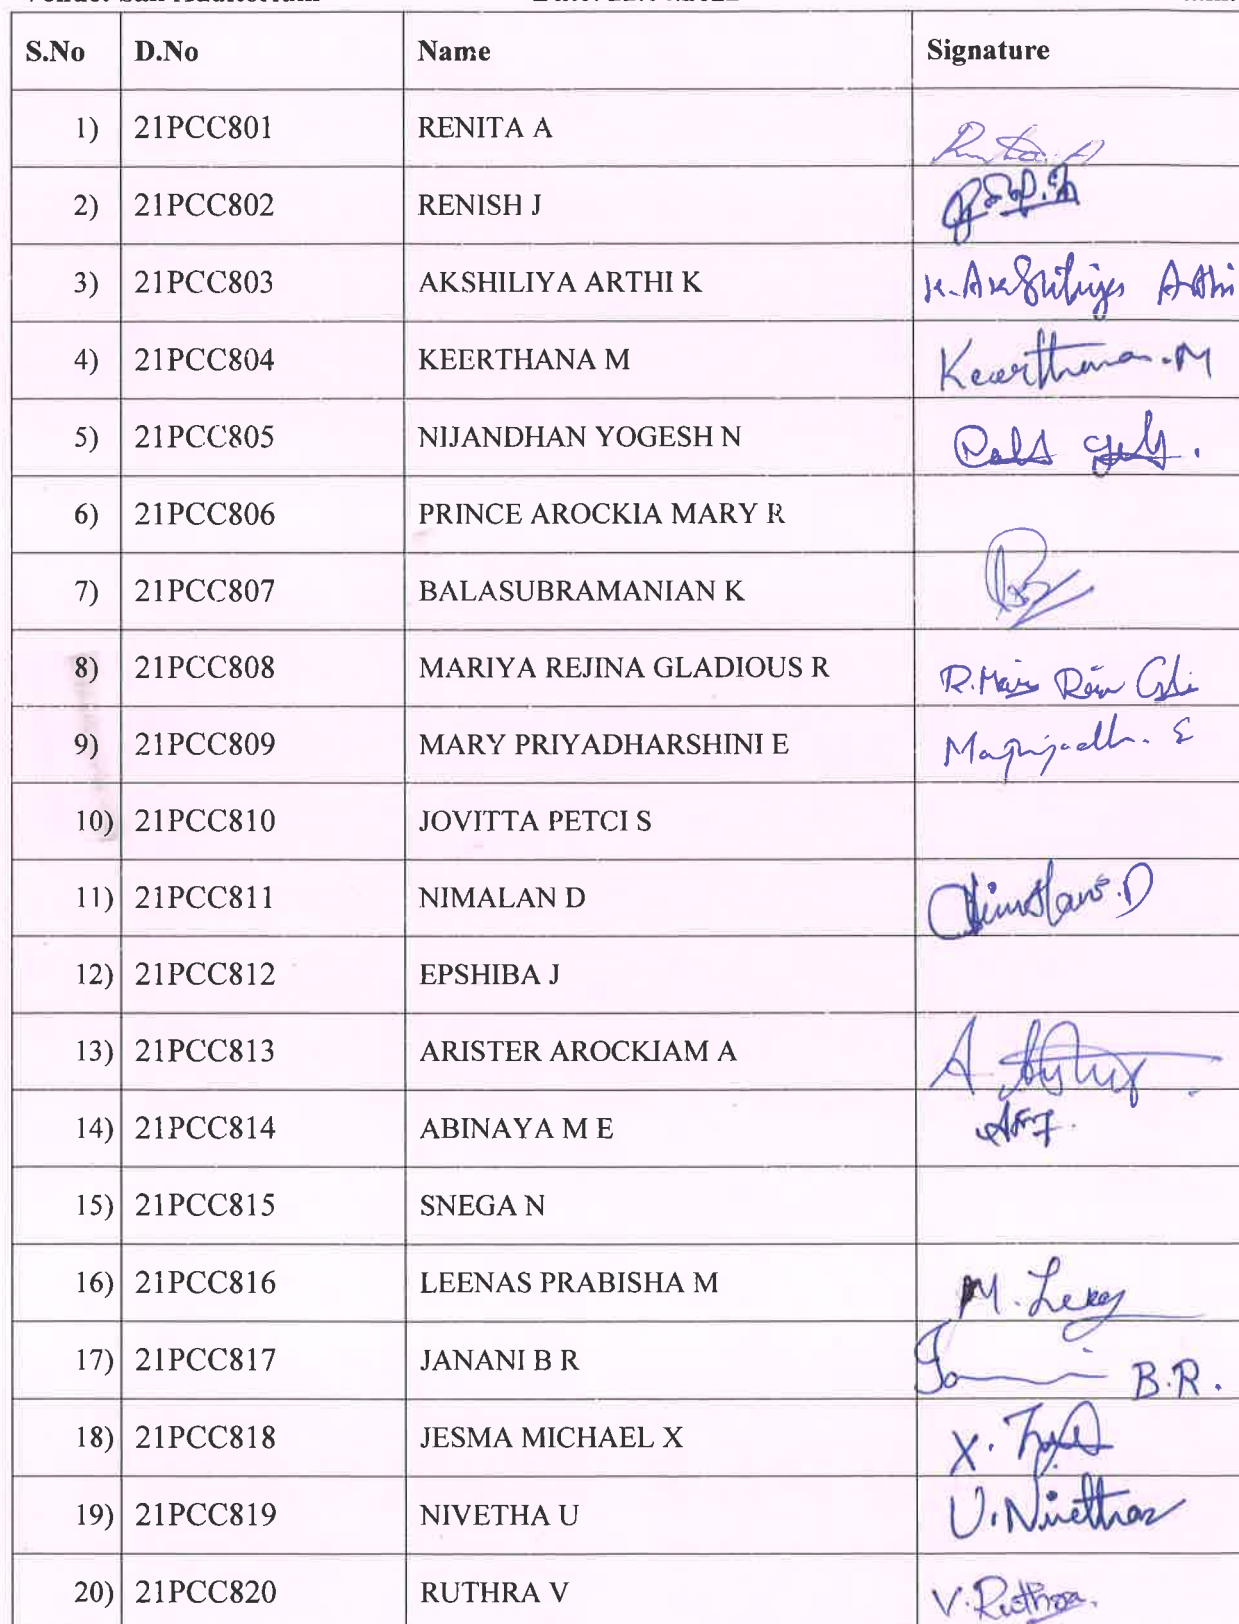 S.No D.No Name Signature
1) 21PCC801 RENITA A
2) 21PCC802 RENISH J
3) 21PCC803 AKSHILIYA ARTHI K
4) 21PCC804 KEERTHANA M Keerthana.M
5) 21PCC805 NIJANDHAN YOGESH N
6) 21PCC806 PRINCE AROCKIA MARY R
7) 21PCC807 BALASUBRAMANIAN K
8) 21PCC808 MARIYA REJINA GLADIOUS R
9) 21PCC809 MARY PRIYADHARSHINI E
10) 21PCC810 JOVITTA PETCI S
11) 21PCC811 NIMALAN D
12) 21PCC812 EPSHIBA J
13) 21PCC813 ARISTER AROCKIAM A
14) 21PCC814 ABINAYA M E
15) 21PCC815 SNEGA N
16) 21PCC816 LEENAS PRABISHA M
17) 21PCC817 JANANI B R B.R.
18) 21PCC818 JESMA MICHAEL X
19) 21PCC819 NIVETHA U U.Nivetha
20) 21PCC820 RUTHRA V V.Ruthra.